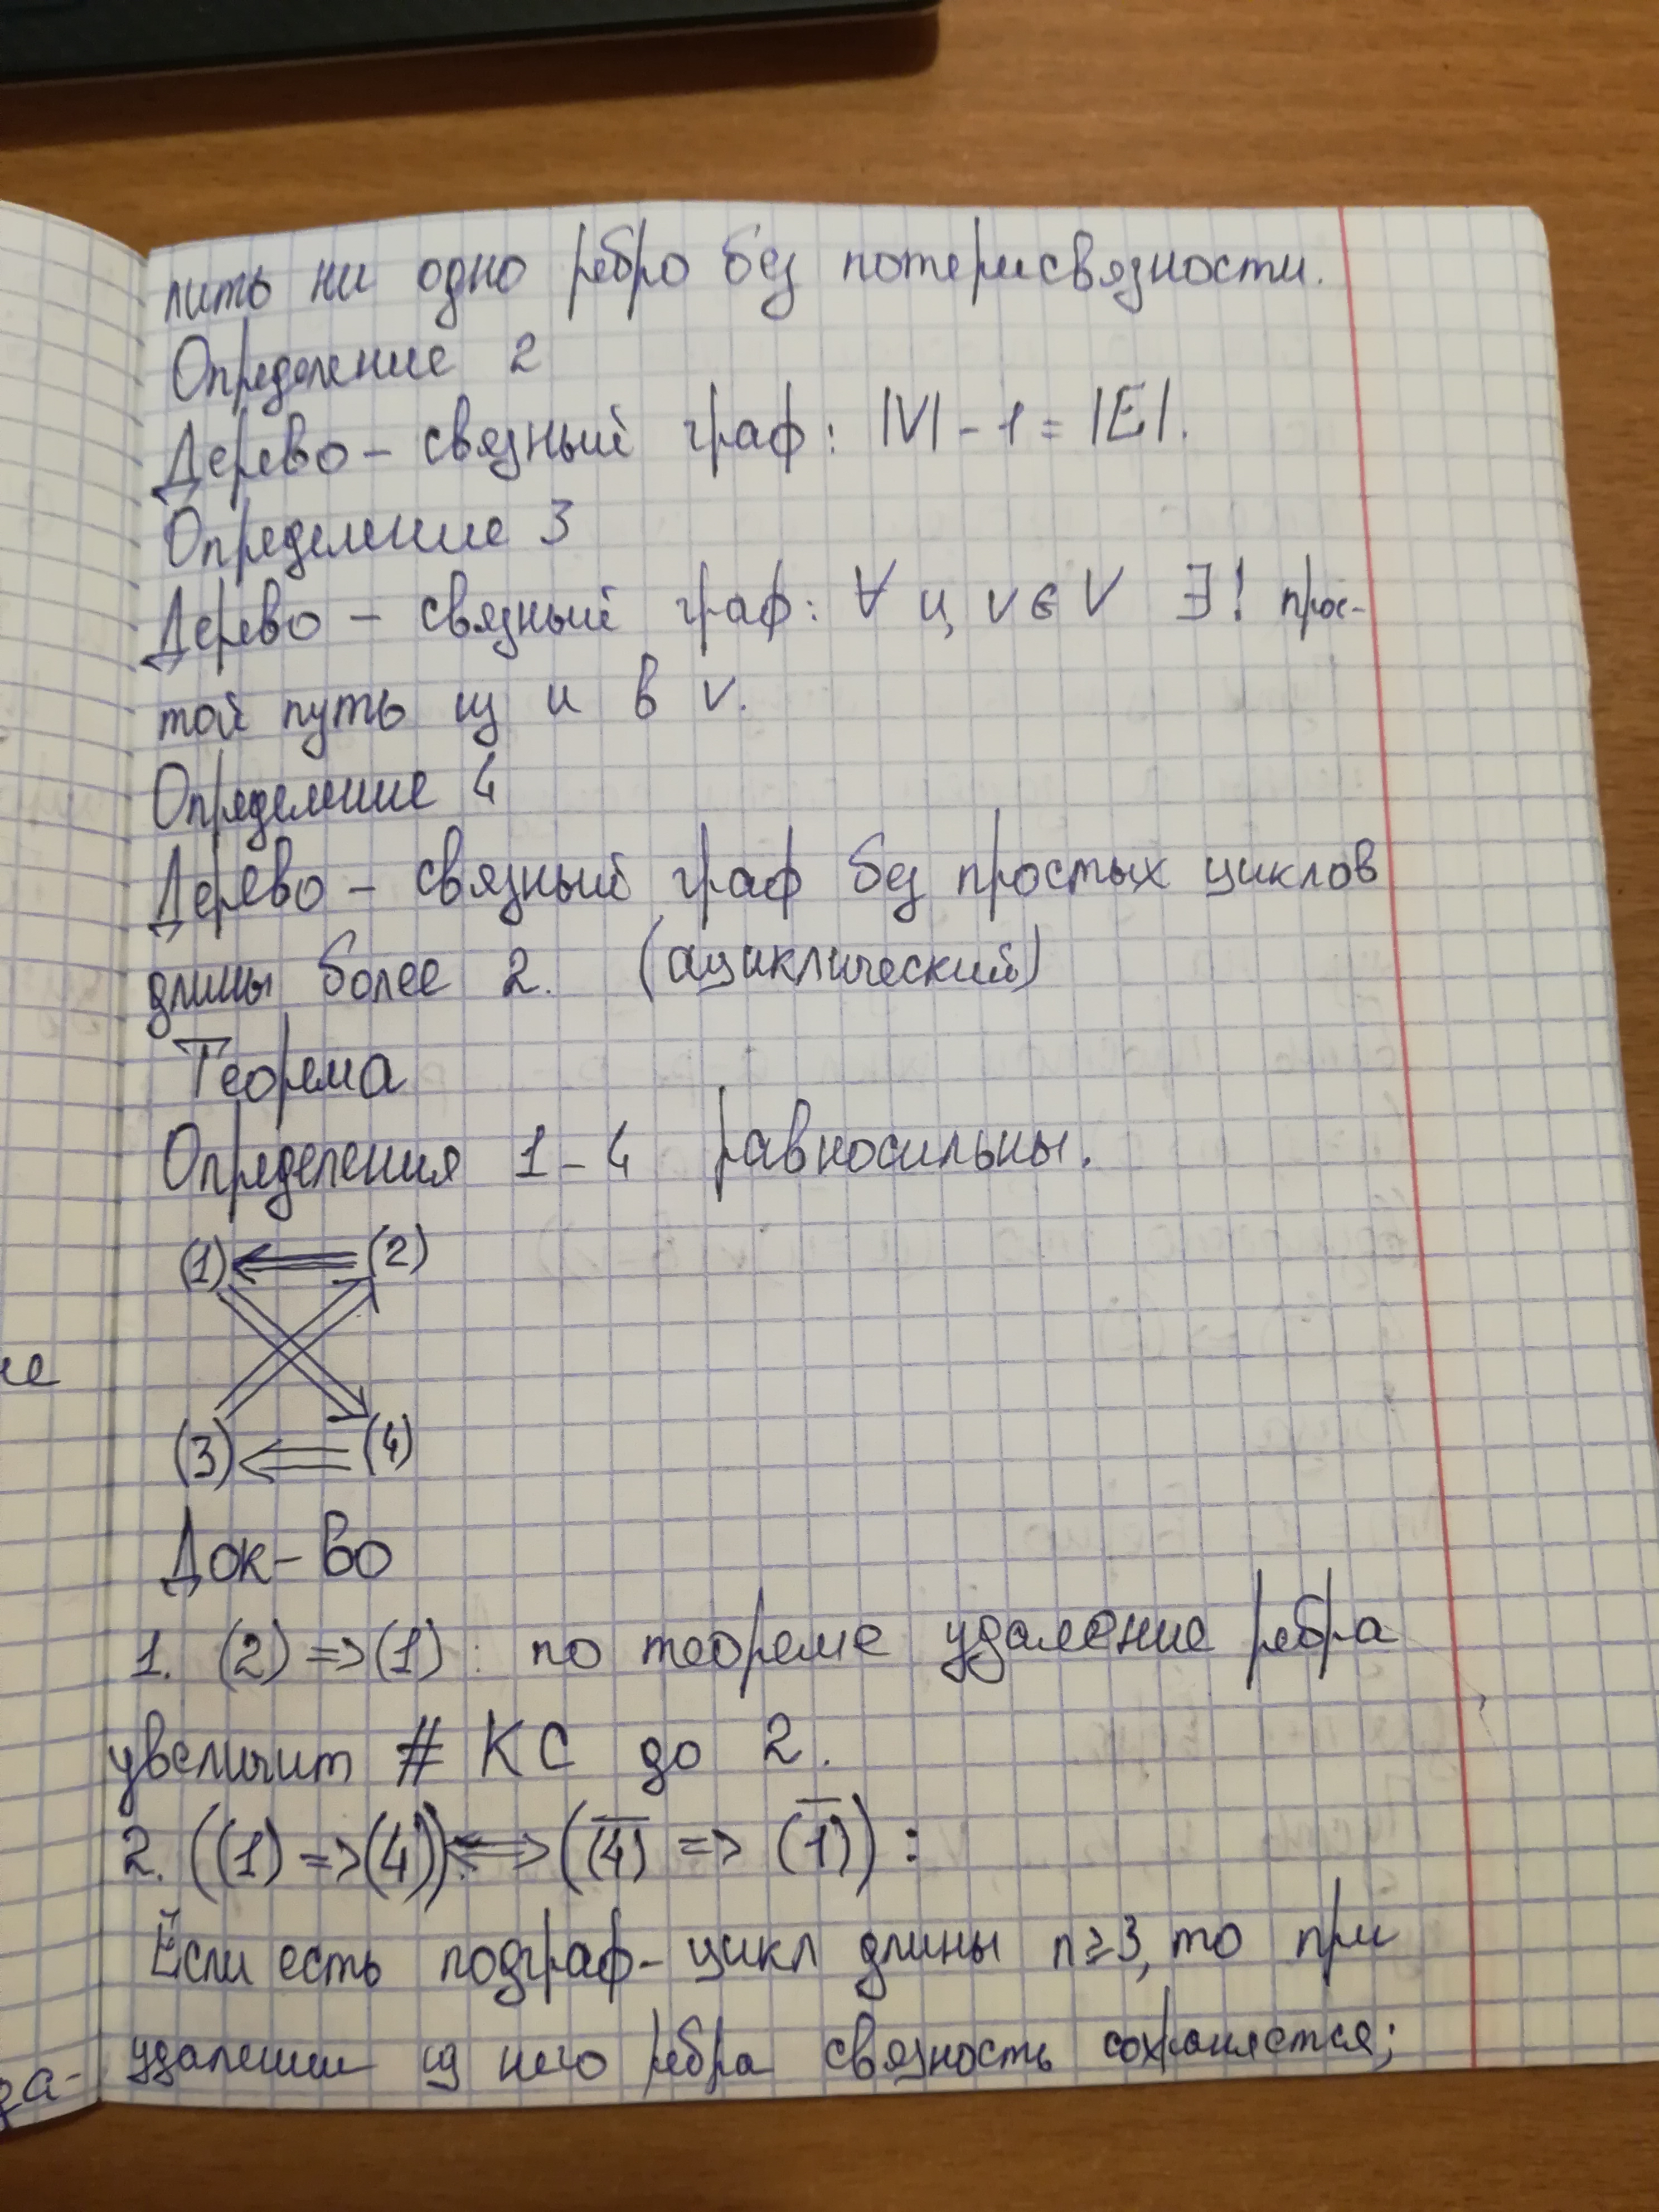 лить ни одно ребро без потери связности.
Определение 2
Дерево – связный граф: |V| - 1 = |E|.
Определение 3
Дерево – связный граф: ∀ u, v ∈ V ∃! прос-
той путь из u в v.
Определение 4
Дерево – связный граф без простых циклов
длины более 2. (ациклический)
Теорема
Определения 1-4 равносильны.
(1) ⇐ (2)
(3) ⇐ (4)
Док-во
1. (2) => (1) : по теореме удаление ребра
увеличит # КС до 2.
2. ((1) => (4)) <=> (\overline{(4)} => \overline{(1)}) :
Если есть подграф-цикл длины n≥3, то при
удалении из него ребра связность сохраняется;